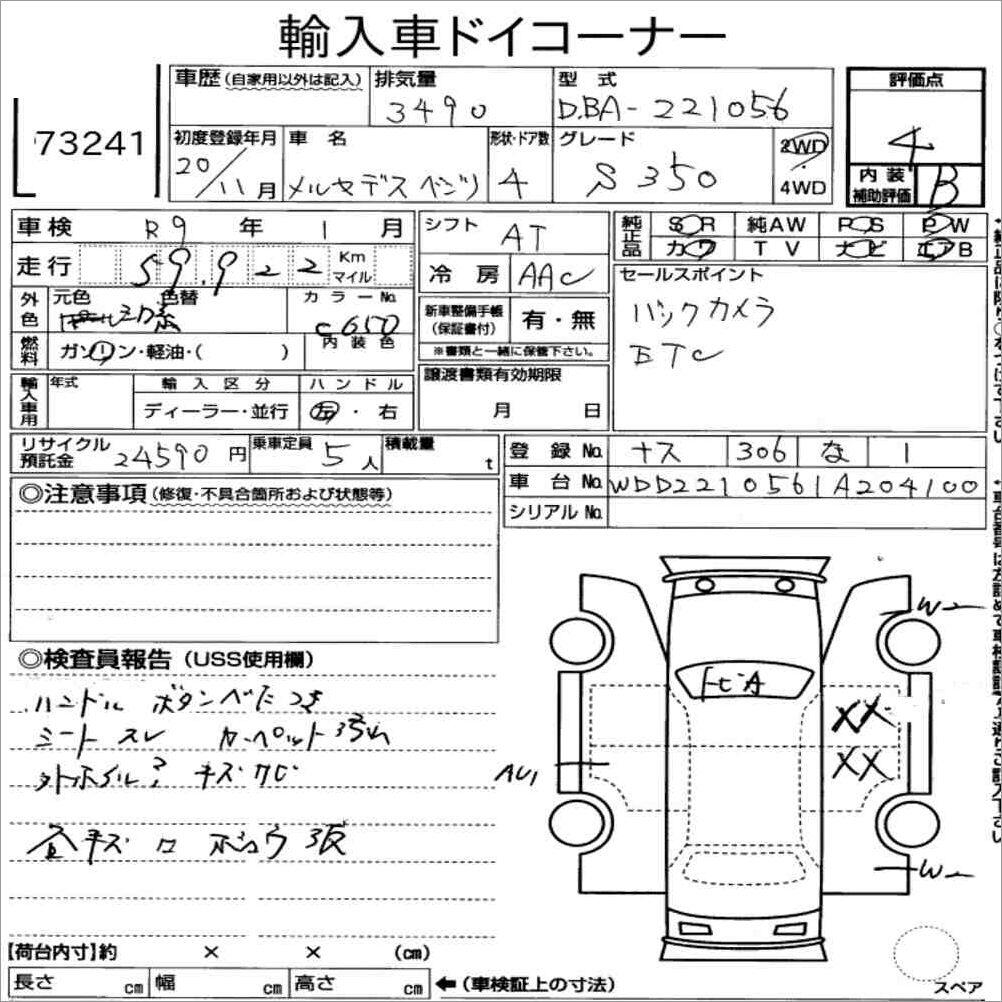 輸入車ドイコーナー
73241
車歴(自家用以外は記入) 排気量 型式 評価点
3490 DBA-221056 4
初度登録年月 車名 形状・ドア数 グレード 2WD
20/11月 メルセデスベンツ 4 S350 4WD
内装補助評価 B
車検 R9年 1月 シフト AT 純正品 SR 純AW PS PW
カワ TV ナビ エアB
走行 59,922 Km マイル 冷房 AAC セールスポイント
バックカメラ
ETC
外色 元色 色替 カラーNo.
c650
燃料 ガソリン・軽油・( ) 内装色
新車整備手帳(保証書付) 有・無
※書類と一緒に保管下さい。
輸入車用 年式 輸入区分 ハンドル 譲渡書類有効期限
ディーラー・並行 左・右 月 日
リサイクル預託金 24590円 乗車定員 5人 積載量 t
登録No. ナス 306 な 1
車台No. WDD2210561A204100
シリアルNo.
◎注意事項(修復・不具合箇所および状態等)
◎検査員報告(USS使用欄)
ハンドル ボタンベたつき
シートスレ カーペット汚れ
キズ
W2
XX
XX
AU1
【荷台内寸】約 × × (cm)
長さ cm 幅 cm 高さ cm ←(車検証上の寸法)
スペア